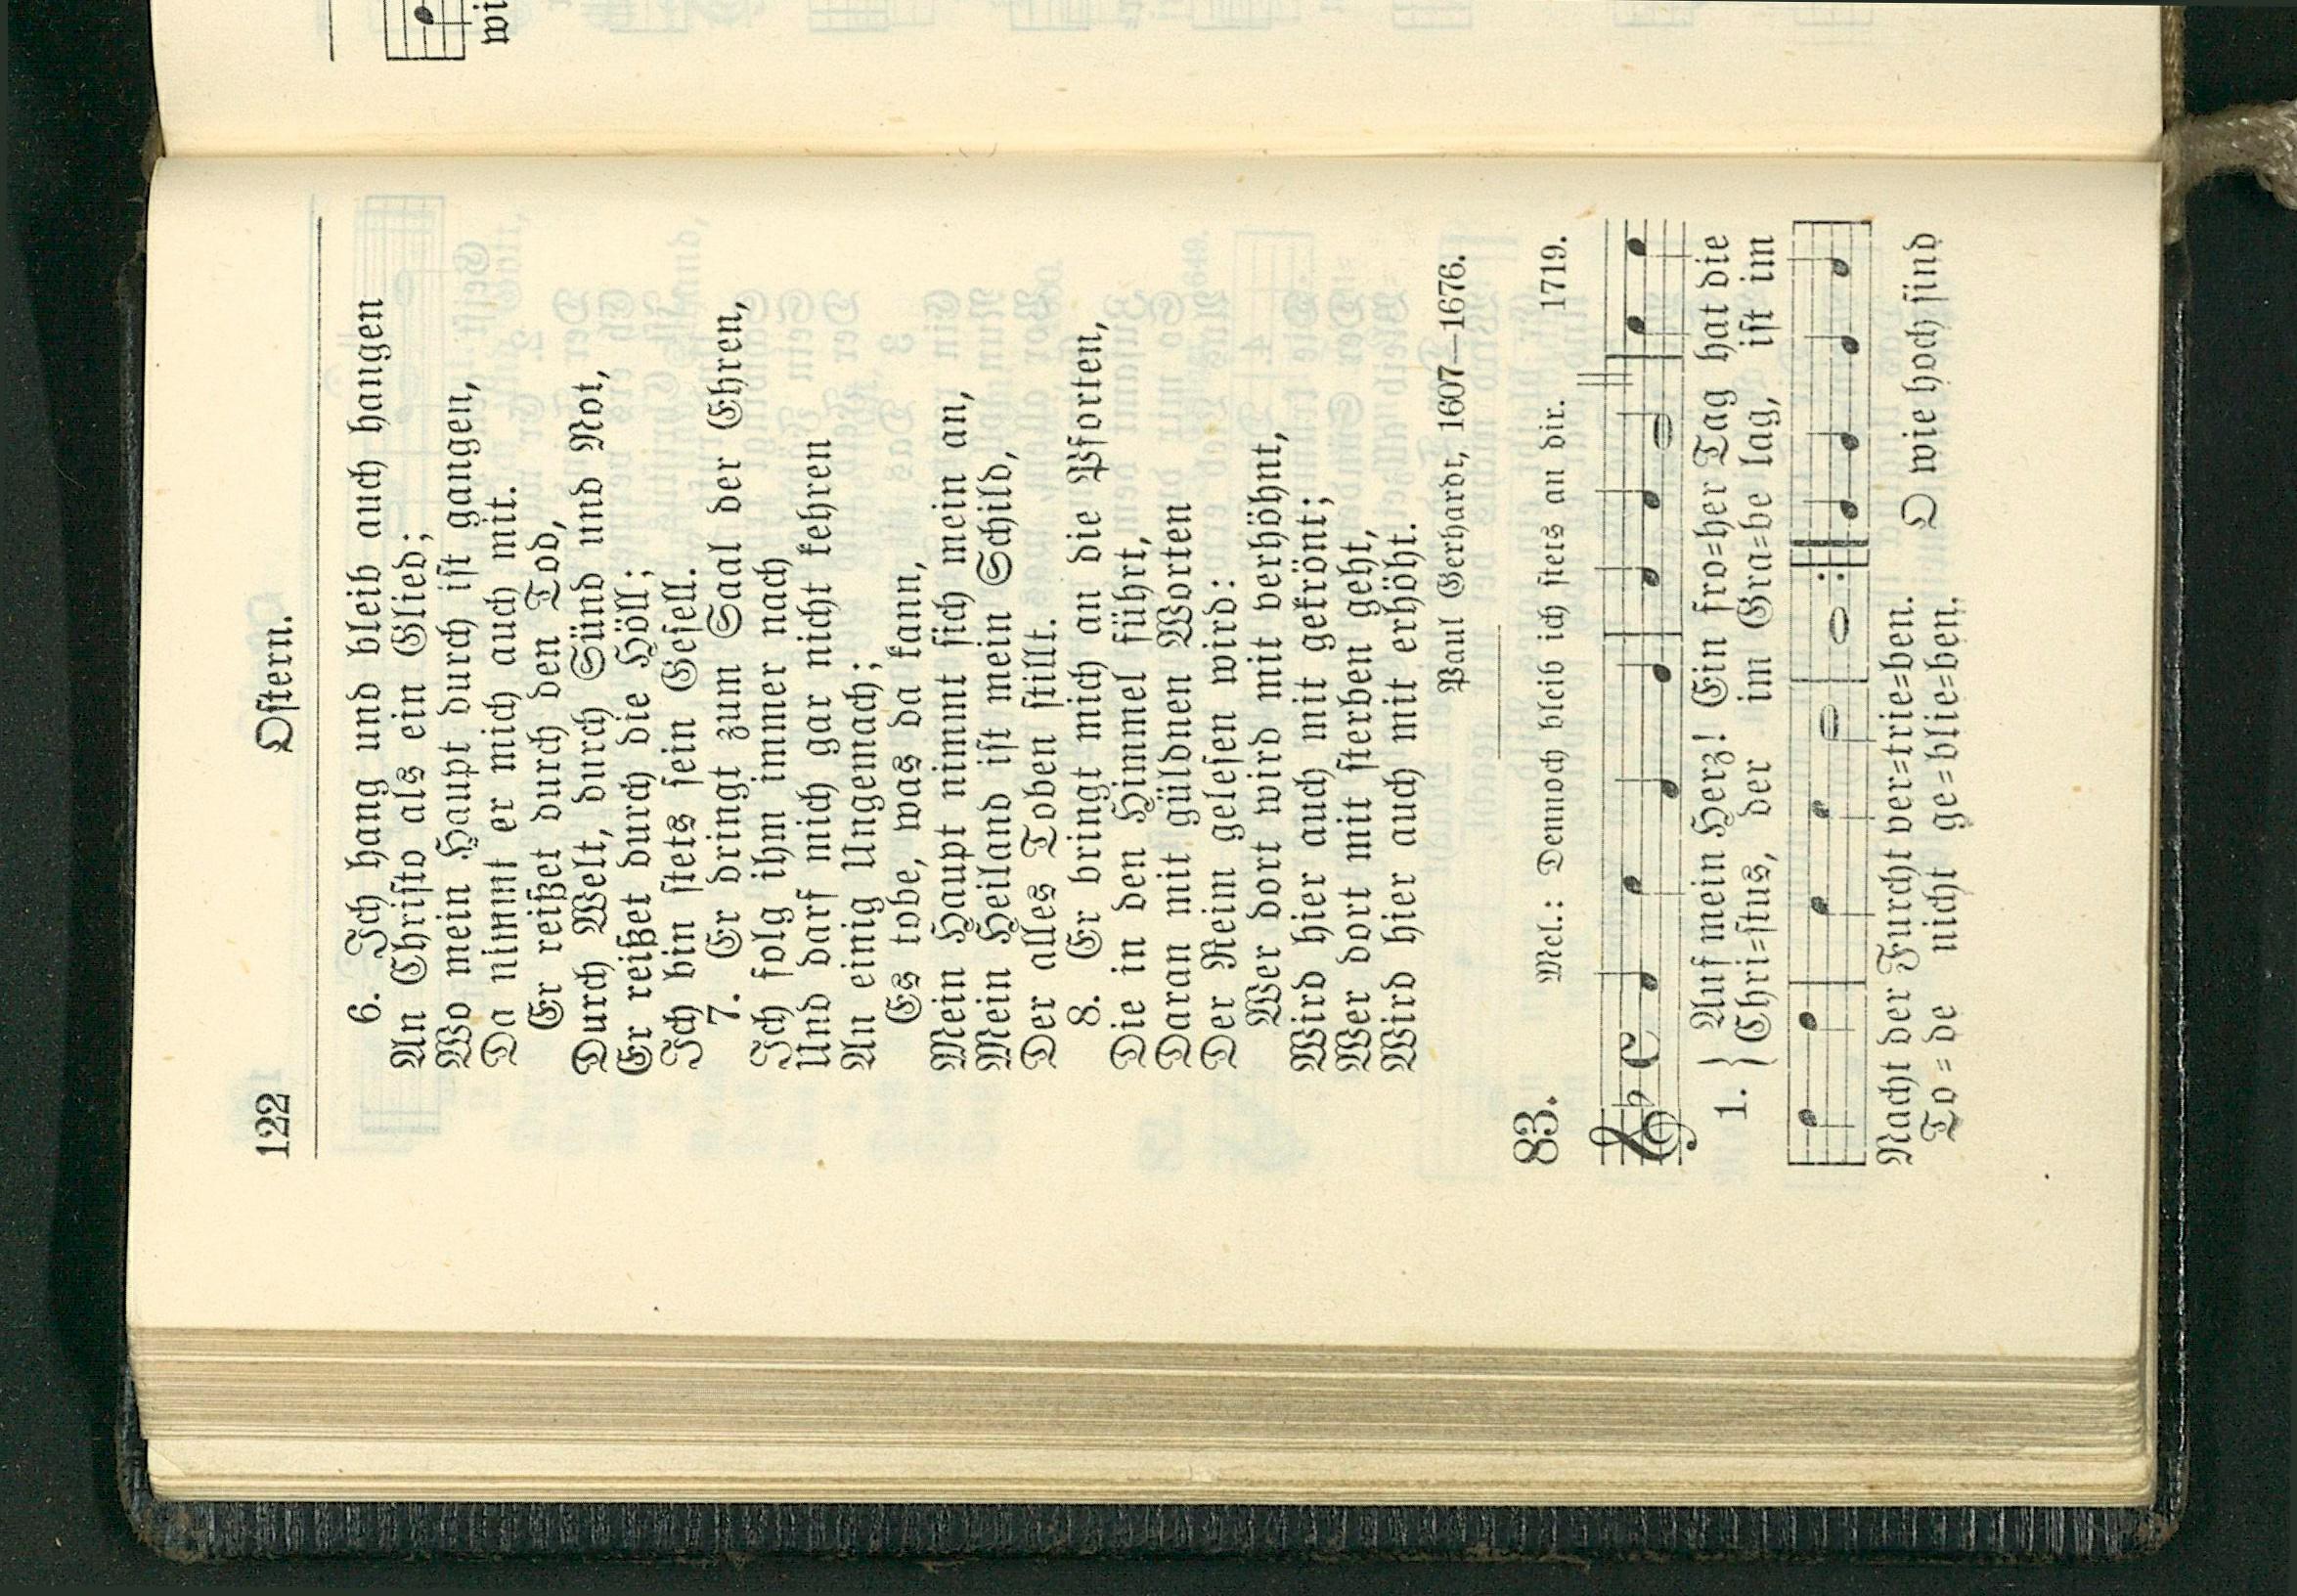 122 Ostern.
6. Ich hang und bleib auch hangen
An Christo als ein Glied;
Wo mein Haupt durch ist gangen,
Da nimmt er mich auch mit.
Er reißet durch den Tod,
Durch Welt, durch Sünd und Not,
Er reißet durch die Höll;
Ich bin stets sein Gesell.
7. Er dringt zum Saal der Ehren,
Ich folg ihm immer nach
Und darf mich gar nicht kehren
An einig Ungemach;
Es tobe, was da kann,
Mein Haupt nimmt sich mein an,
Mein Heiland ist mein Schild,
Der alles Toben stillt.
8. Er bringt mich an die Pforten,
Die in den Himmel führt,
Daran mit güldnen Worten
Der Reim gelesen wird:
Wer dort wird mit verhöhnt,
Wird hier auch mit gekrönt;
Wer dort mit sterben geht,
Wird hier auch mit erhöht.
Paul Gerhardt, 1607—1676.
83. Mel.: Dennoch bleib ich stets an dir. 1719.
1. { Auf mein Herz! Ein fro=her Tag hat die
Chri=stus, der im Gra=be lag, ist im
Nacht der Furcht ver=trie=ben.
To=de nicht ge=blie=ben. O wie hoch sind
wi